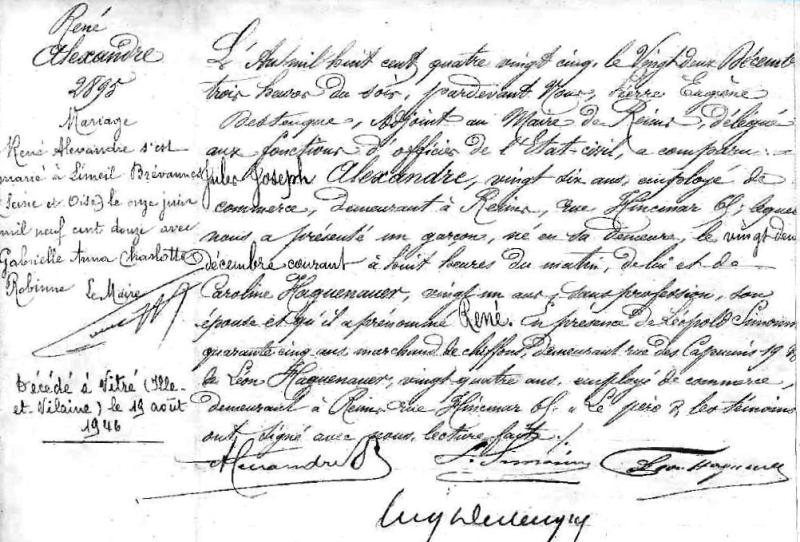 René
Alexandre
2895
Mariage
René Alexandre s'est
marié à Limeil Brévannes
(Seine et Oise) le onze juin
mil neuf cent douze avec
Gabrielle Anna Charlotte
Robinne
Le Maire
Décédé à Vitré (Ille-
et-Vilaine) le 19 août
1946
L'An mil huit cent quatre vingt cinq, le Vingt deux Décembre
trois heures du soir, pardevant Nous, Pierre Eugène
Adjoint au Maire de Reims, délégué
aux fonctions d'officier de l'Etat-civil, a comparu
Jules Joseph Alexandre, vingt six ans, employé de
commerce, demeurant à Reims, rue Hincmar 61, lequel
nous a présenté un garçon, né en sa demeure, le vingt deux
décembre courant à huit heures du matin, de lui et de
Caroline Haguenauer, vingt un ans, sans profession, son
épouse et qu'il a prénommé René. En présence de Léopold Simonin
quarante cinq ans, marchand de chiffons, demeurant rue des Capucins 19 &
de Léon Haguenauer, vingt-quatre ans, employé de commerce,
demeurant à Reims rue Hincmar 61. Le père & les témoins
ont signé avec nous, lecture faite ./.
Alexandre